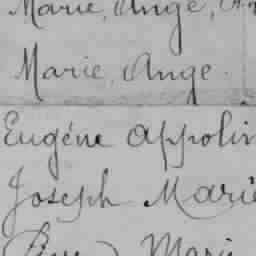 Marie, Ange,
Marie, Ange.
Eugéne Appolin
Joseph Marie
Marie